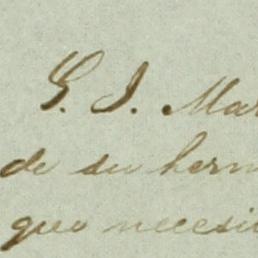 G. J. Mar
de su herm
que necesi